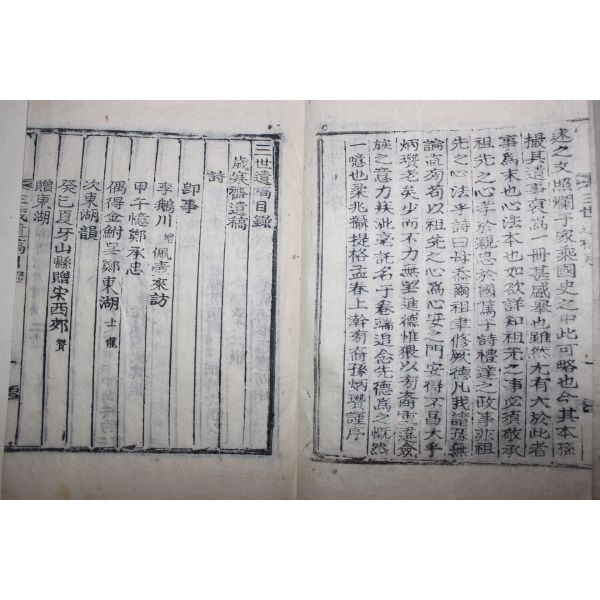 述之文照爛于家乘國史之中此可略也今其本孫
撮其遺事裒為一冊甚盛擧也雖然尤有大於此者
事為末也心法本也如欲詳知祖先之事必須敬承
祖先之心孝於親忠於國篤于詩禮達之政事非祖
先之心法乎詩曰毋忝爾祖聿修厥德凡我諸孫無
論直旁苟以祖先之心為心安之門安得不昌大乎
炳瓚老矣少而不力無望進德惟猥以旁裔重違僉
族之意力疾泚毫託名于卷端追念先德為之慨然
一噫也柔兆攝提格孟春上澣旁裔孫炳瓚謹序
三世遺稿
三世遺稿目錄
歲寒齋遺稿
詩
卽事
李鵝川 增 佩壺來訪
甲午憶鄭承忠
偶得金鮒呈鄭東湖 士龍
次東湖韻
癸巳夏牙山縣贈宋西郊 贊
贈東湖
三世遺稿 目錄